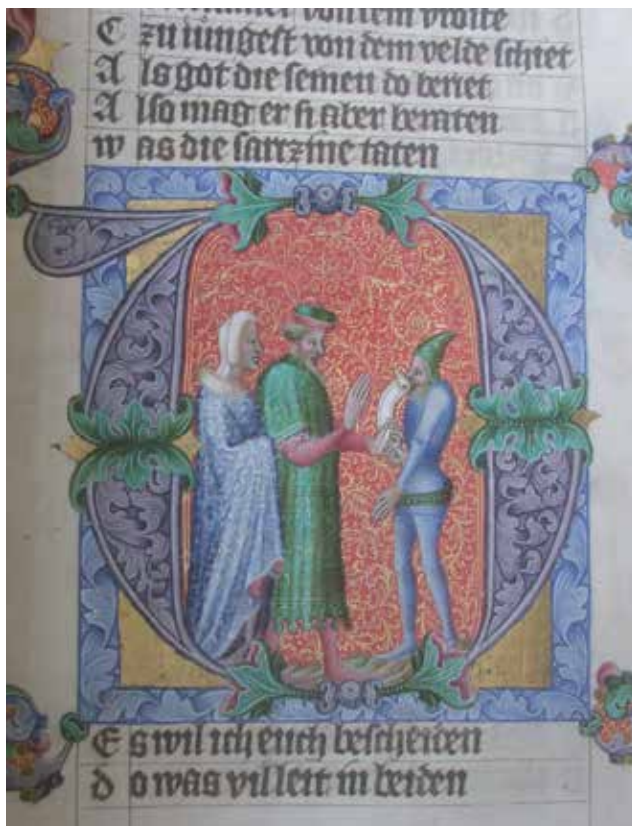 von dem
C zu iungest von dem velde schiet
A ls got die semen do beriet
A lso mag er si aber beraten
w as die sarrzine taten
D
E s wil ich euch bescheiden
d o was vil leit in beiden